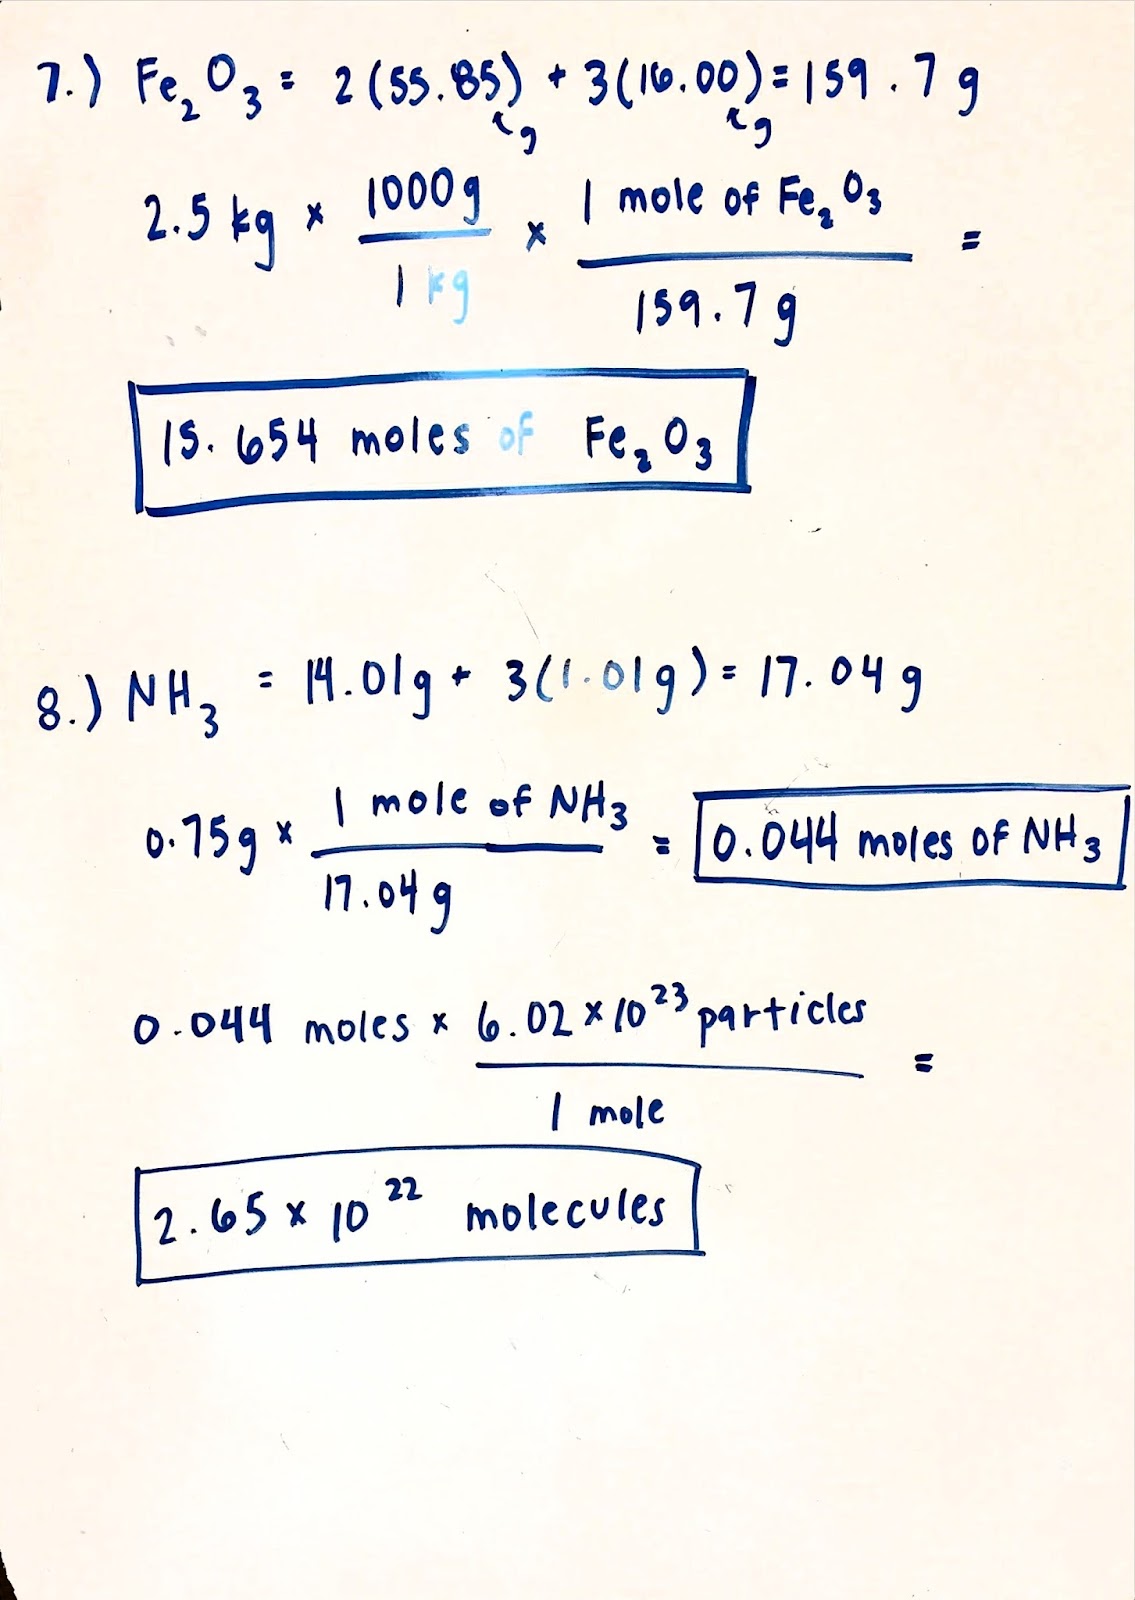 7.) Fe₂O₃ = 2(55.85) + 3(16.00) = 159.7 g
↖g ↖g
2.5 kg × 1000g / 1 kg × 1 mole of Fe₂O₃ / 159.7 g =
15.654 moles of Fe₂O₃
8.) NH₃ = 14.01g + 3(1.01g) = 17.04 g
0.75g × 1 mole of NH₃ / 17.04 g = 0.044 moles of NH₃
0.044 moles × 6.02 × 10²³ particles / 1 mole =
2.65 × 10²² molecules